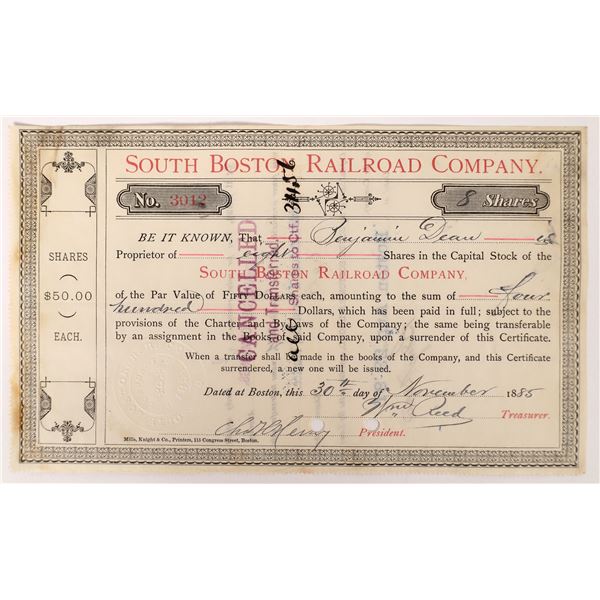 SOUTH BOSTON RAILROAD COMPANY.
No. 3012
8 Shares
BE IT KNOWN, That Benjamin Dean is
Proprietor of eight Shares in the Capital Stock of the
SOUTH BOSTON RAILROAD COMPANY,
of the Par Value of FIFTY DOLLARS each, amounting to the sum of Four
hundred Dollars, which has been paid in full; subject to the
provisions of the Charter and By-Laws of the Company; the same being transferable
by an assignment in the Books of said Company, upon a surrender of this Certificate.
When a transfer shall be made in the books of the Company, and this Certificate
surrendered, a new one will be issued.
Dated at Boston, this 30th day of November 1885
Wm Reed Treasurer.
President.
Mills, Knight & Co., Printers, 115 Congress Street, Boston.
SHARES
$50.00
EACH.
CANCELLED
and Transferred
all Shares to Ctf.